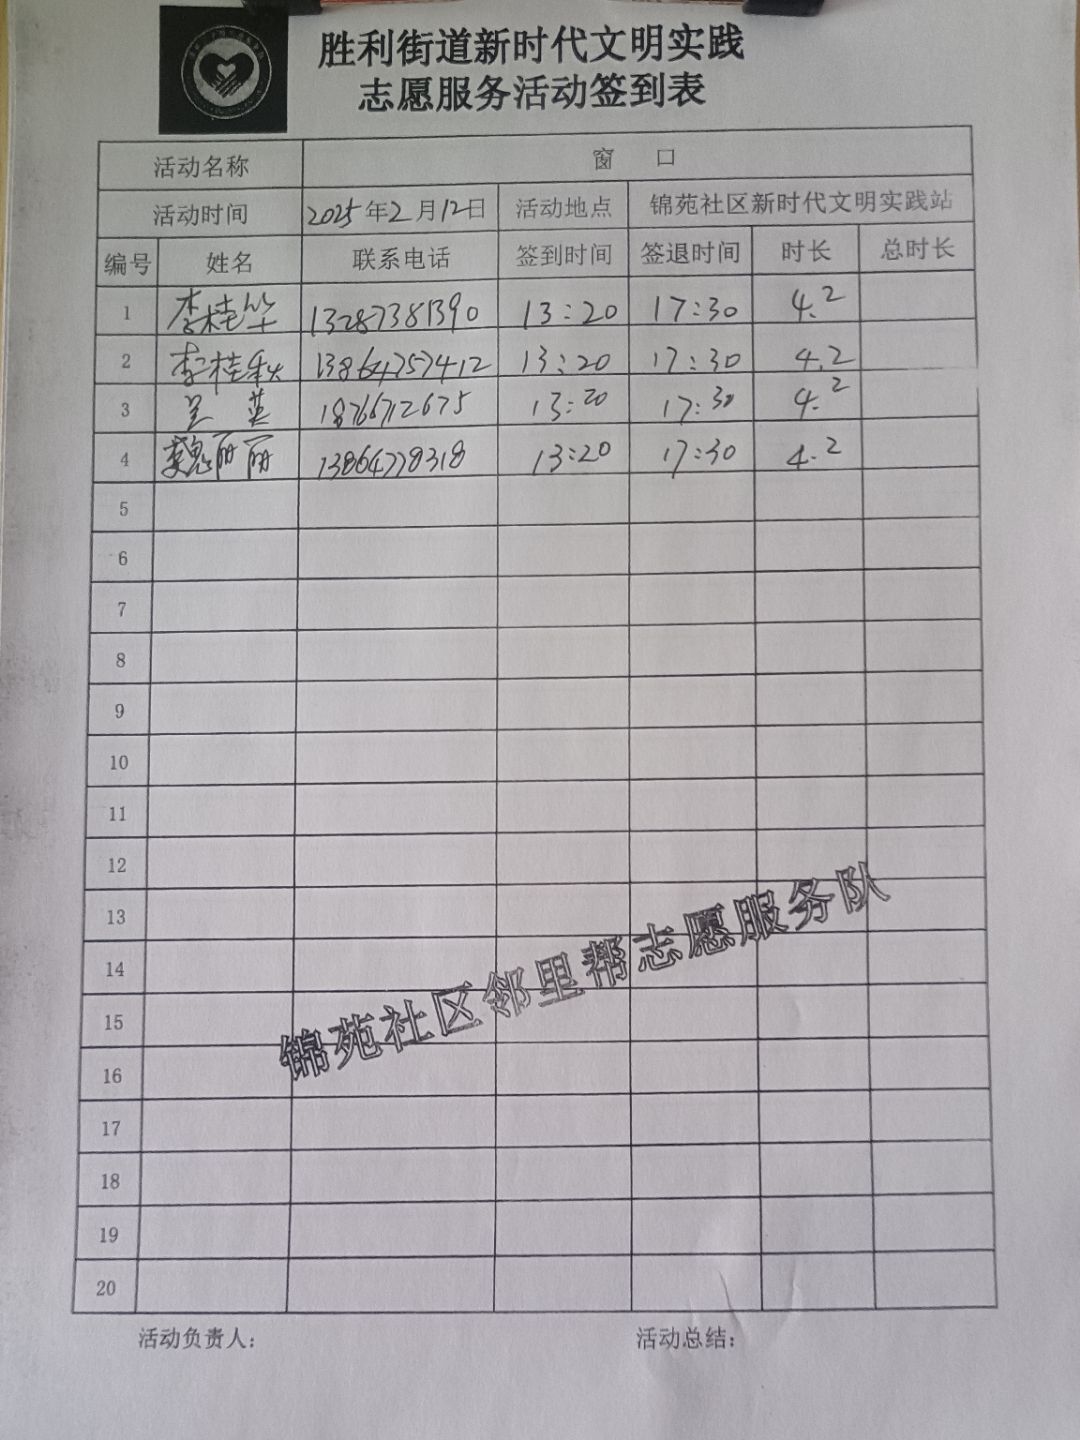 胜利街道新时代文明实践
志愿服务活动签到表
活动名称 窗 口
活动时间 2025年2月12日 活动地点 锦苑社区新时代文明实践站
编号 姓名 联系电话 签到时间 签退时间 时长 总时长
1 李桂华 13287381390 13:20 17:30 4.2
2 李桂秋 13864757412 13:20 17:30 4.2
3 吴英 18766712675 13:20 17:30 4.2
4 魏丽丽 13864778318 13:20 17:30 4.2
5
6
7
8
9
10
11
12
13
14
15
16
17
18
19
20
锦苑社区邻里帮志愿服务队
活动负责人： 活动总结：